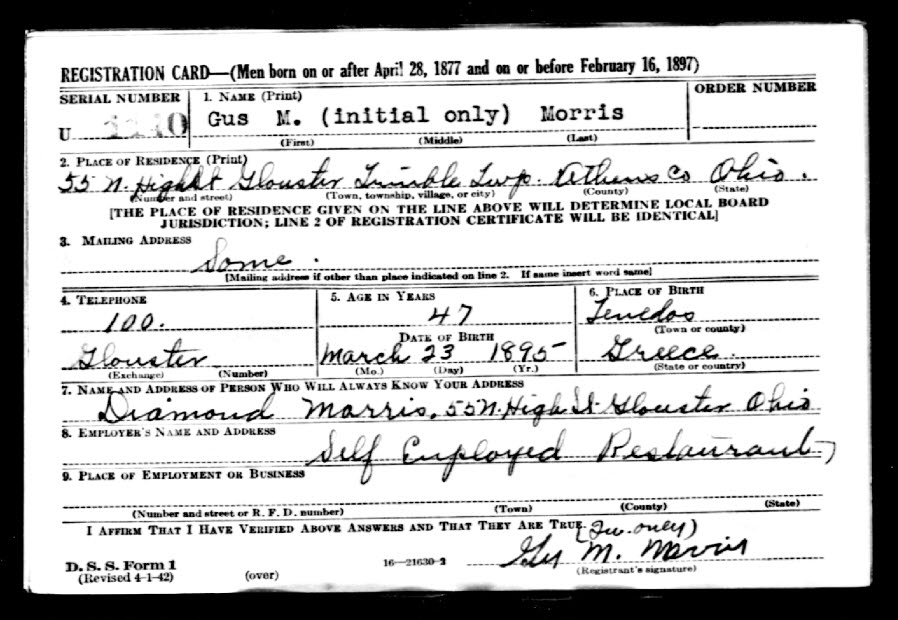 REGISTRATION CARD—(Men born on or after April 28, 1877 and on or before February 16, 1897)
SERIAL NUMBER
1. NAME (Print)
ORDER NUMBER
U
Gus M. (initial only) Morris
(First) (Middle) (Last)
2. PLACE OF RESIDENCE (Print)
55 N. High St Glouster Trimble Twp. Athens Co Ohio.
(Number and street) (Town, township, village, or city) (County) (State)
[THE PLACE OF RESIDENCE GIVEN ON THE LINE ABOVE WILL DETERMINE LOCAL BOARD
JURISDICTION; LINE 2 OF REGISTRATION CERTIFICATE WILL BE IDENTICAL]
3. MAILING ADDRESS
Same.
[Mailing address if other than place indicated on line 2. If same insert word same]
4. TELEPHONE
5. AGE IN YEARS
6. PLACE OF BIRTH
100.
47
Tenedos
(Town or county)
DATE OF BIRTH
Glouster
March 23 1895
Greece.
(Exchange) (Number)
(Mo.) (Day) (Yr.)
(State or country)
7. NAME AND ADDRESS OF PERSON WHO WILL ALWAYS KNOW YOUR ADDRESS
Diamond Morris, 55 N. High St. Glouster Ohio
8. EMPLOYER'S NAME AND ADDRESS
Self Employed Restaurant
9. PLACE OF EMPLOYMENT OR BUSINESS
(Number and street or R. F. D. number) (Town) (County) (State)
I AFFIRM THAT I HAVE VERIFIED ABOVE ANSWERS AND THAT THEY ARE TRUE.
(In. only)
Gus M. Morris
D. S. S. Form 1
(Revised 4-1-42) (over)
16—21630-2
(Registrant's signature)